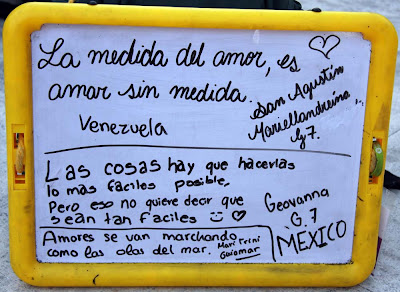 La medida del amor, es
amar sin medida.
San Agustín
Mariellandreina
G7.
Venezuela
Las cosas hay que hacerlas
lo más faciles posible,
Pero eso no quiere decir que
sean tan faciles
Geovanna
G.7
MÉXICO
Amores se van marchando
como las olas del mar.
Mari Trini
Guiomar